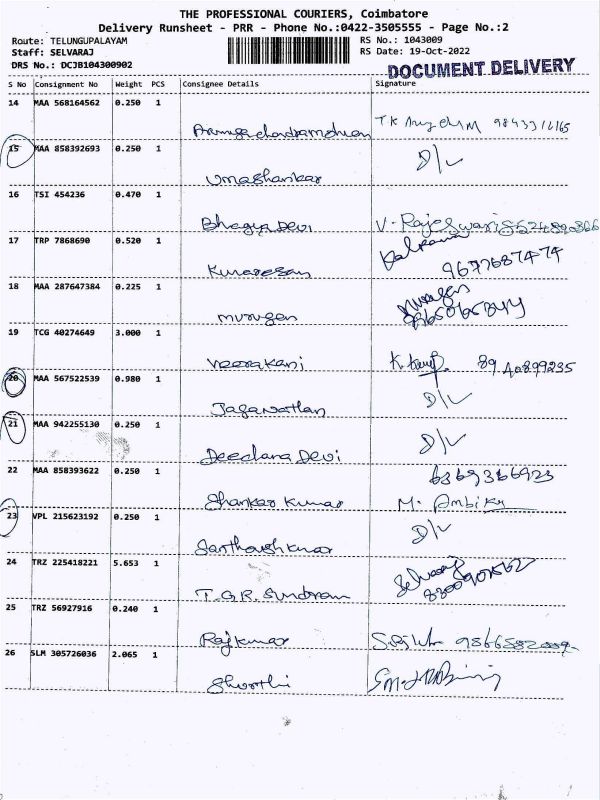 THE PROFESSIONAL COURIERS, Coimbatore
Delivery Runsheet - PRR - Phone No.:0422-3505555 - Page No.:2
Route: TELUNGUPALAYAM RS No.: 1043009
Staff: SELVARAJ RS Date: 19-Oct-2022
DRS No.: DCJB104300902 DOCUMENT DELIVERY
S No Consignment No Weight PCS Consignee Details Signature
14 MAA 568164562 0.250 1
15 MAA 858392693 0.250 1 D/L
Umashankar
16 TSI 454236 0.470 1
Bhagya Devi V. Rajeswari
17 TRP 7868690 0.520 1 Kalpana
Kumaresan 9677687474
18 MAA 287647384 0.225 1 Murugan
Murugan
19 TCG 40274649 3.000 1
Veerakani
20 MAA 567522539 0.980 1 D/L
Jaganathan
21 MAA 942255130 0.250 1 D/L
Devi
22 MAA 858393622 0.250 1 6369366923
Shankar Kumar M. Ambika
23 VPL 215623192 0.250 1 D/L
24 TRZ 225418221 5.653 1 Selvaraj
T.G.R. Sundram
25 TRZ 56927916 0.240 1
Rajkumar
26 SLM 305726036 2.065 1
Shurthi